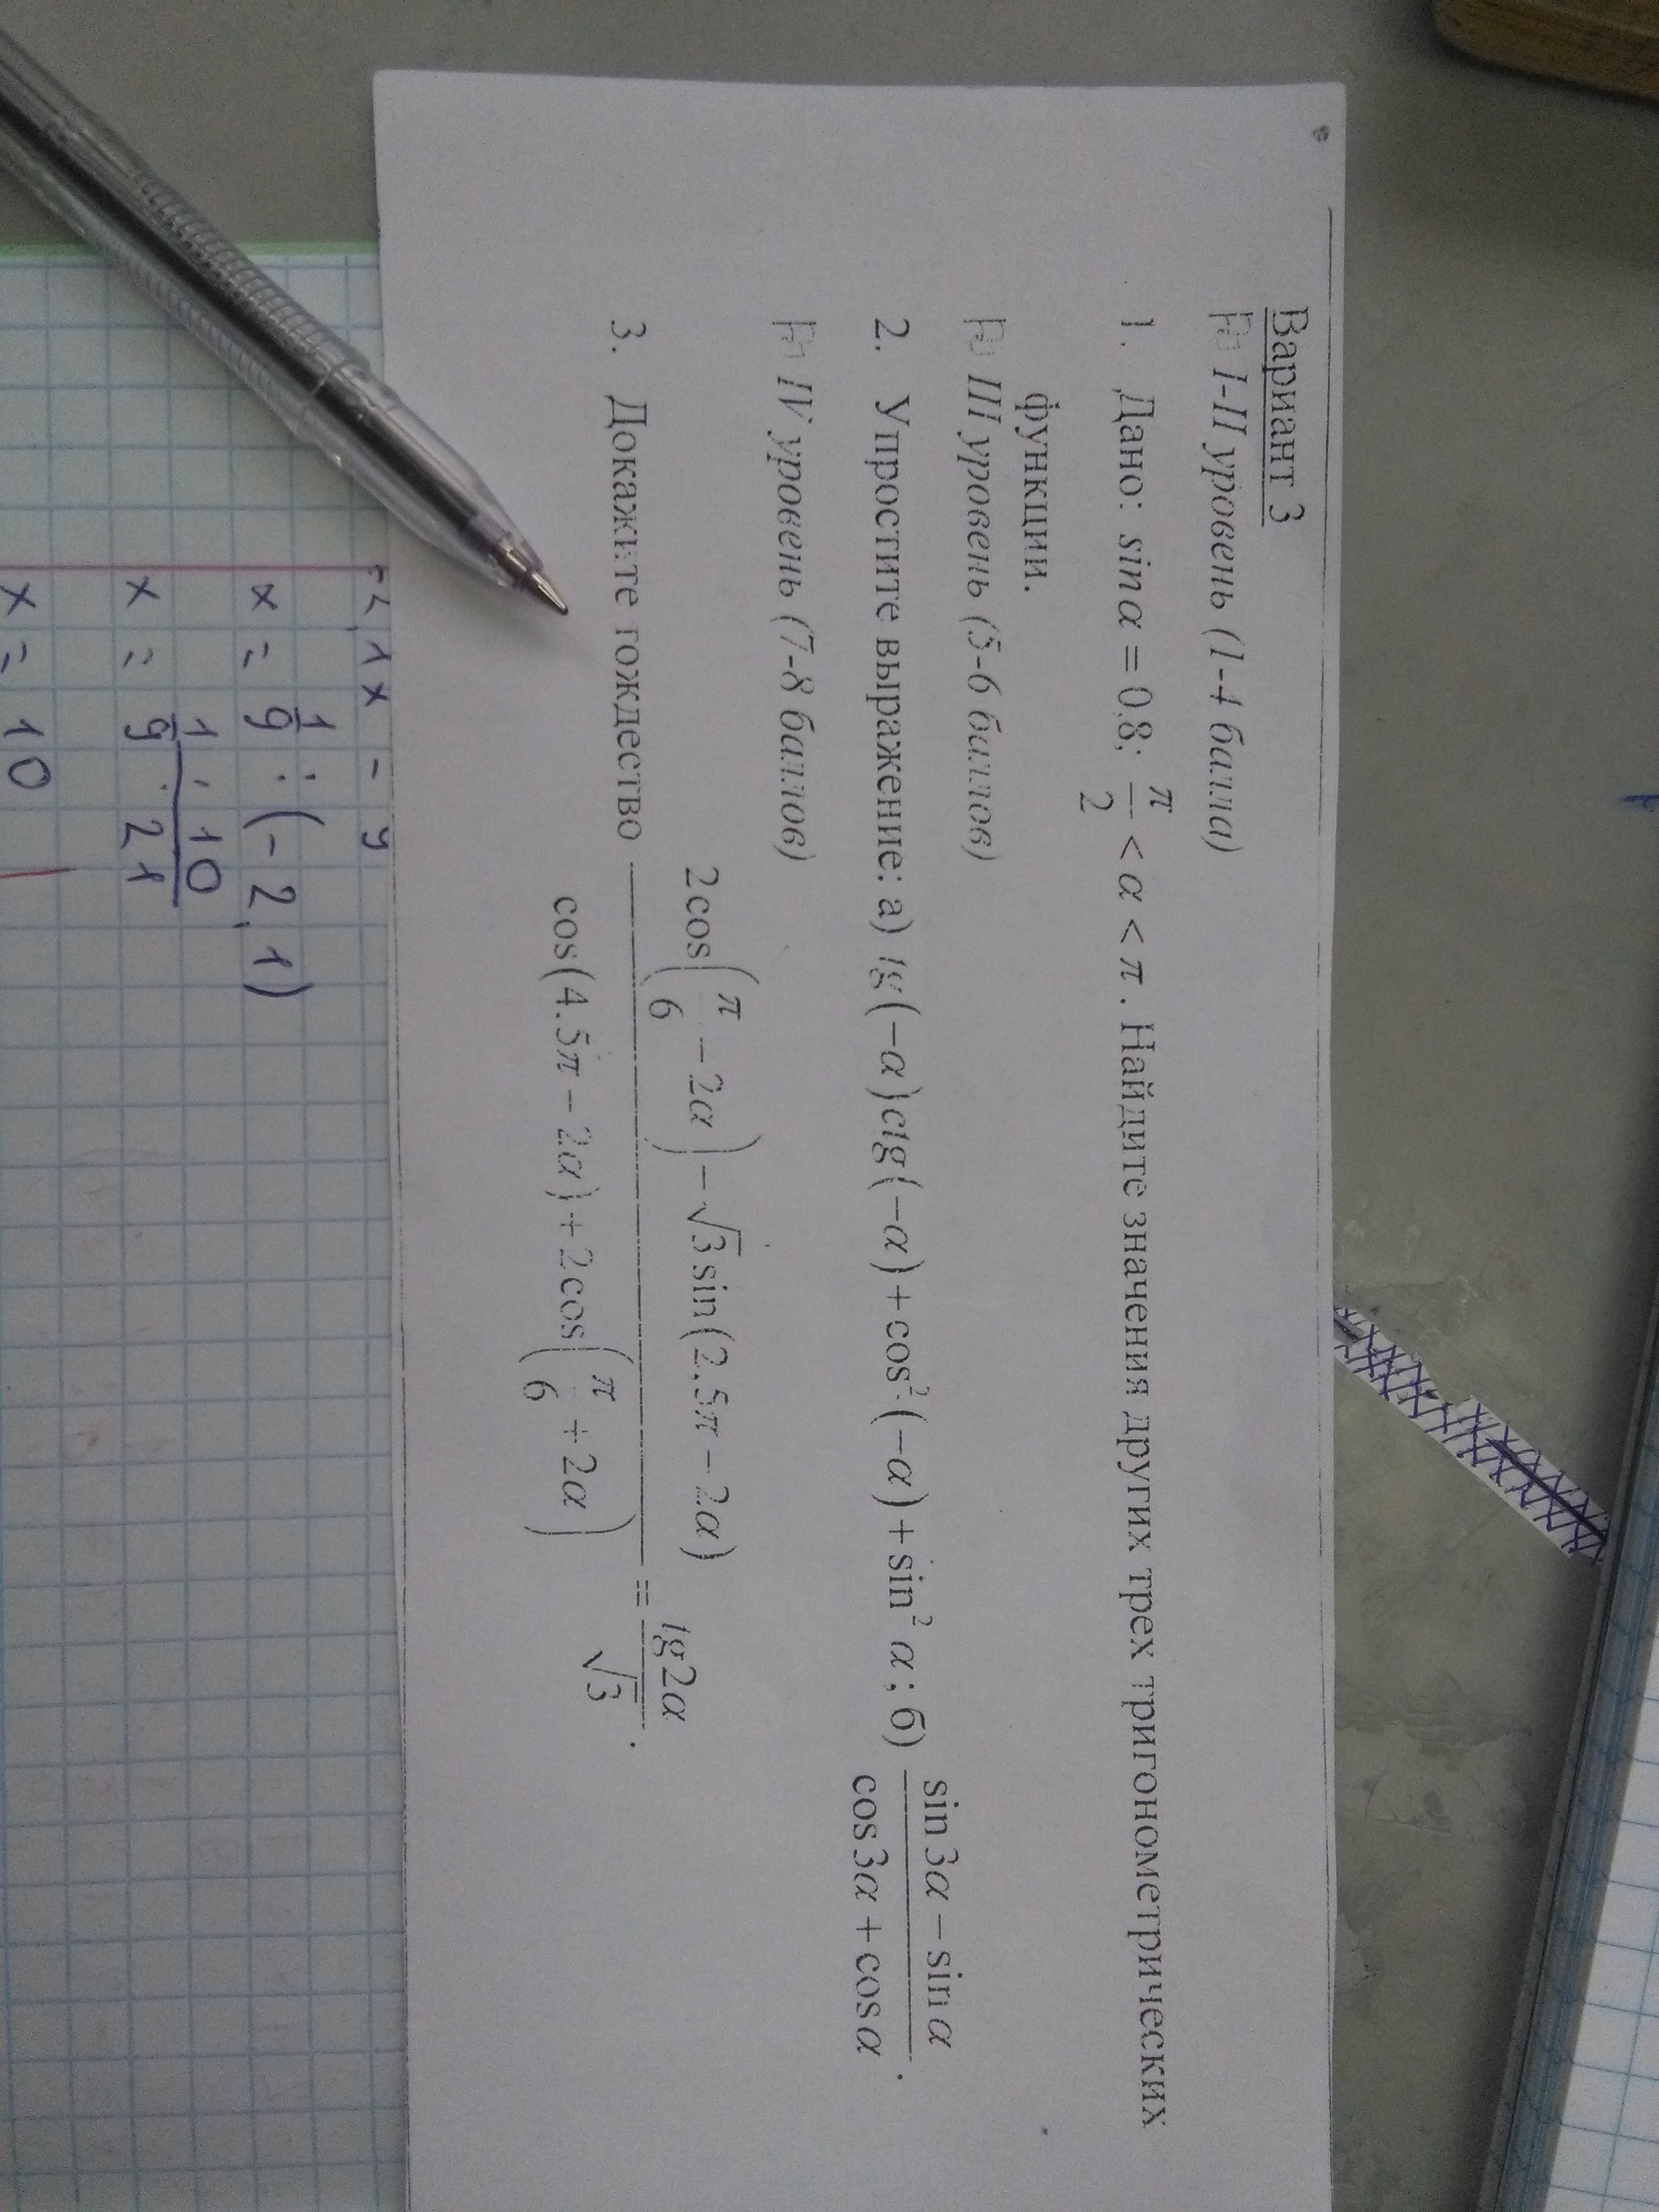 Вариант 3
I-II уровень (1-4 балла)
1. Дано: sin α = 0,8; π/2 < α < π. Найдите значения других трех тригонометрических
функции.
III уровень (5-6 баллов)
2. Упростите выражение: а) tg(−α)ctg(−α)+cos²(−α)+sin² α; б) (sin 3α − sin α)/(cos 3α + cos α).
IV уровень (7-8 баллов)
3. Докажите тождество (2cos(π/6 − 2α) − √3 sin(2.5π − 2α))/(cos(4.5π − 2α) + 2cos(π/6 + 2α)) = tg2α/√3.
x = 1/9 : (-2,1)
x = 1/9 · 10/21
x = 10